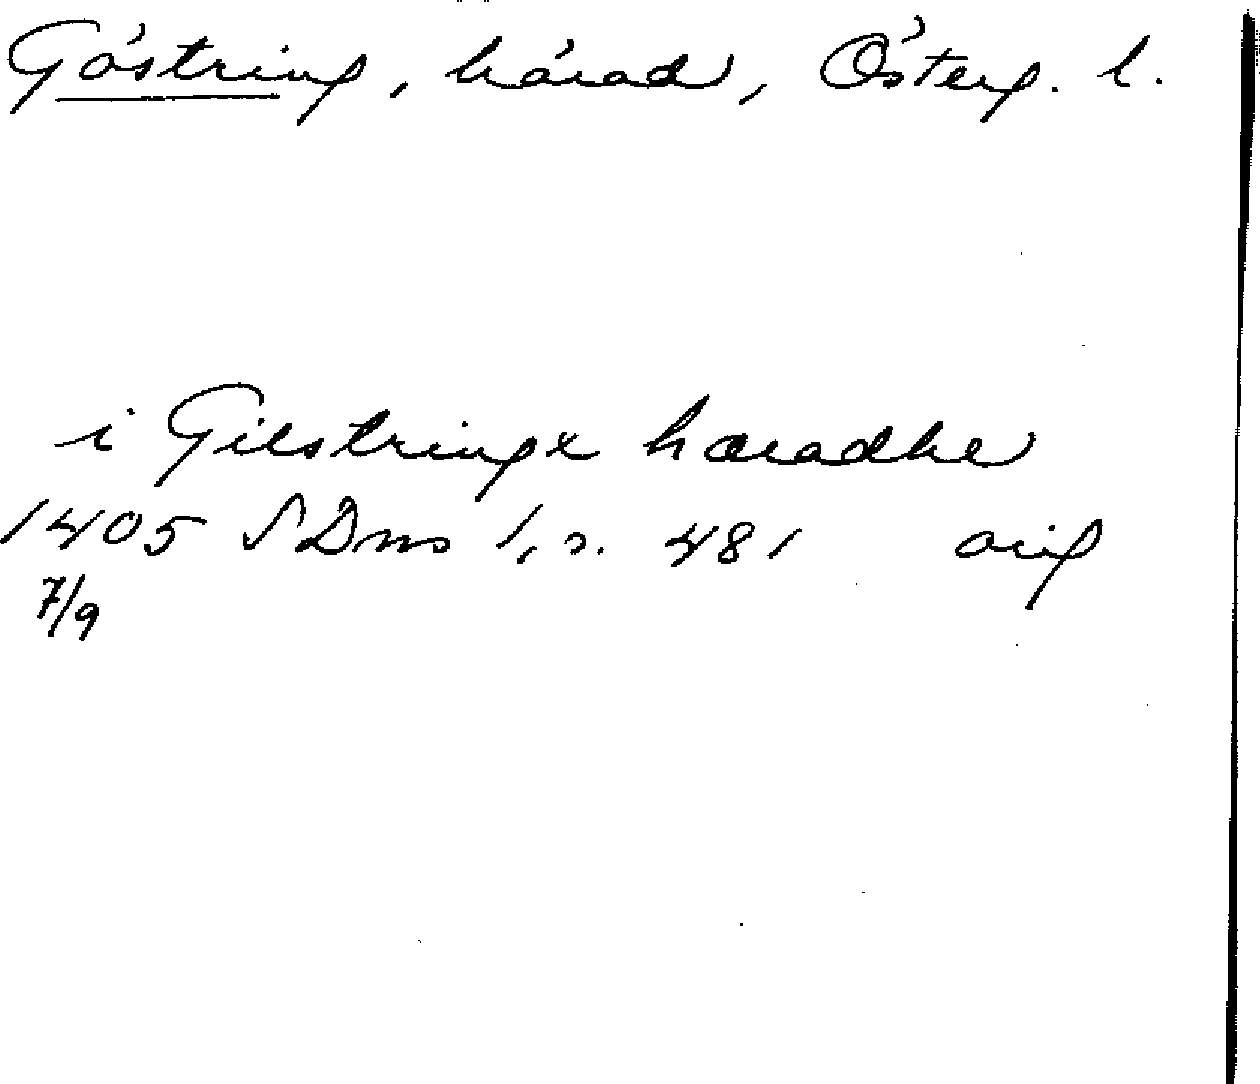 Göstring, härad, Österg. l.
i Gilstringx haradhe
1405 SDns 1, s. 481 orig
7/9